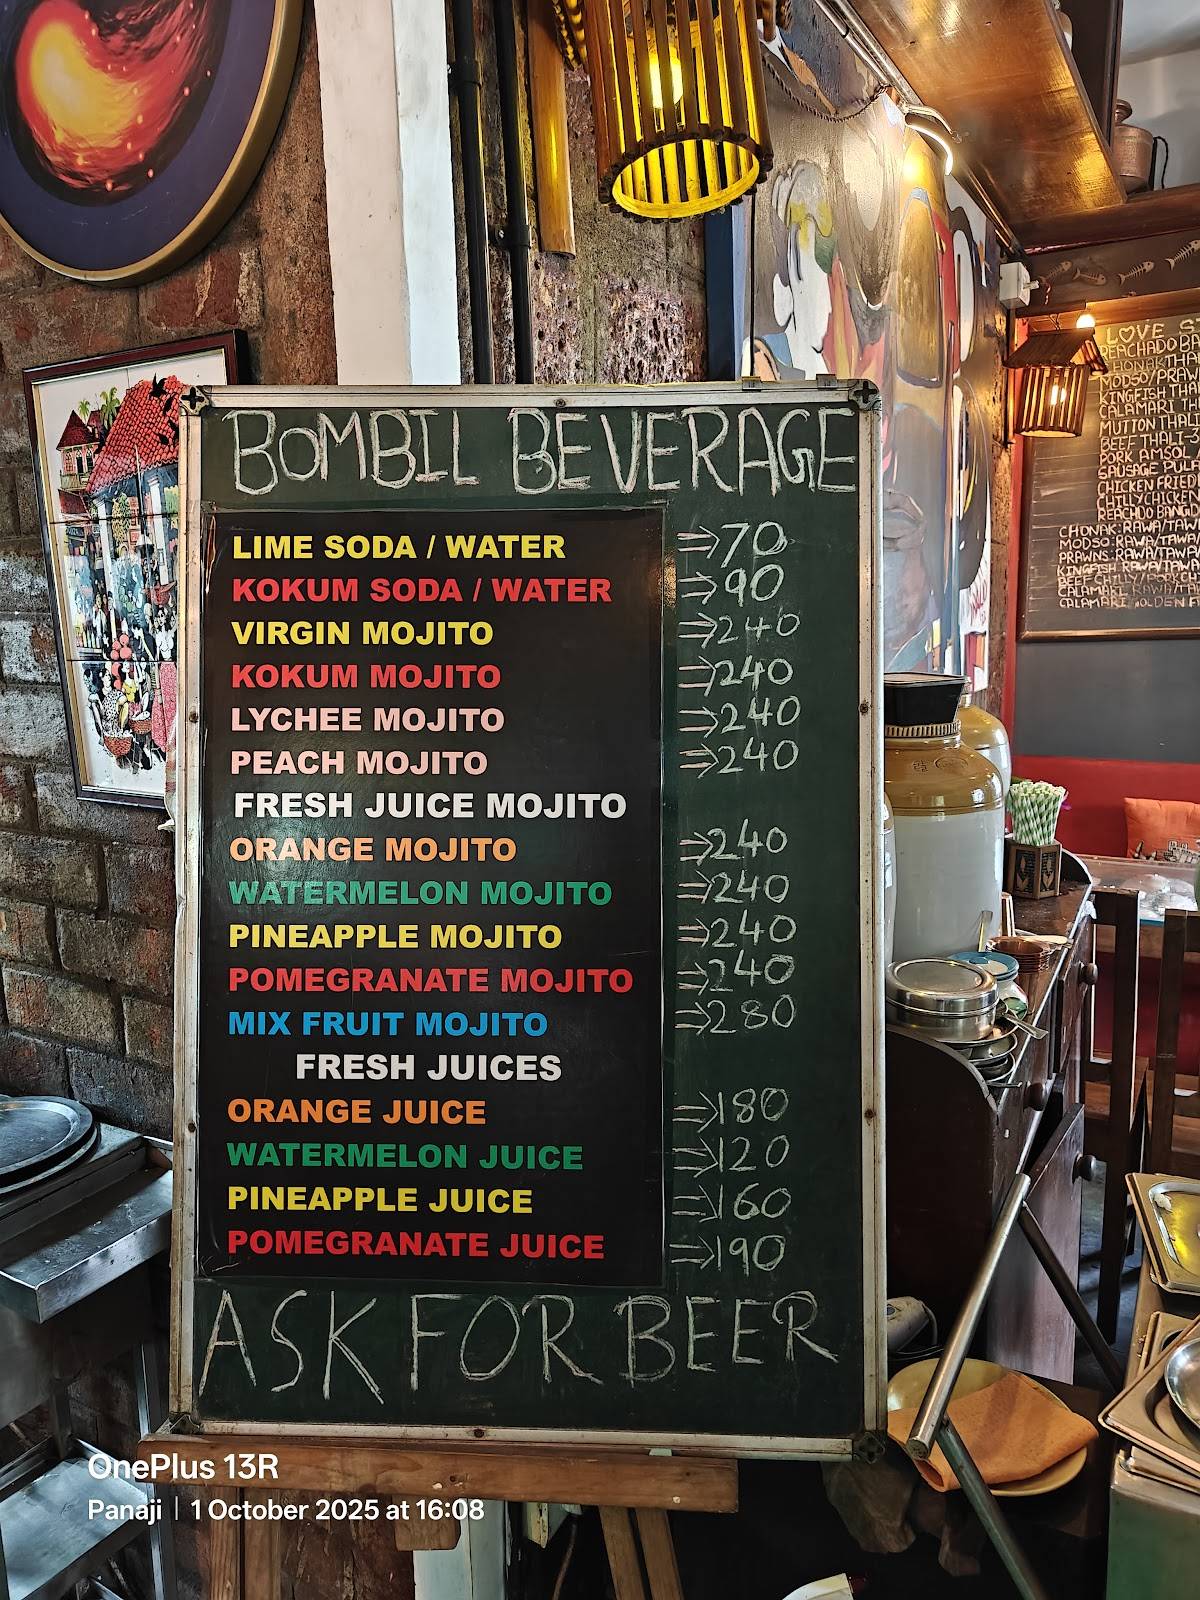 BOMBIL BEVERAGE
LIME SODA / WATER ⇒70
KOKUM SODA / WATER ⇒90
VIRGIN MOJITO ⇒240
KOKUM MOJITO ⇒240
LYCHEE MOJITO ⇒240
PEACH MOJITO ⇒240
FRESH JUICE MOJITO
ORANGE MOJITO ⇒240
WATERMELON MOJITO ⇒240
PINEAPPLE MOJITO ⇒240
POMEGRANATE MOJITO ⇒240
MIX FRUIT MOJITO ⇒280
FRESH JUICES
ORANGE JUICE ⇒180
WATERMELON JUICE ⇒120
PINEAPPLE JUICE ⇒160
POMEGRANATE JUICE ⇒190
ASK FOR BEER
LOVE
REACHADO
MODSO/PRAW
KINGFISH THA
CALAMARI TH
MUTTON THALI
BEEF THALI-3
PORK AMSOL
SAUSAGE PUL
CHICKEN FRIED
CHILLY CHICKEN
REACHDO BANGD
CHONAK:RAWA/TAW
MODSO:RAWA/TAWA/
PRAWNS:RAWA/TAWA
KINGFISH RAWA/TAWA
BEEF CHILLY/PORK
CALAMARI RAWA/
CALAMARI GOLDEN F
OnePlus 13R
Panaji | 1 October 2025 at 16:08